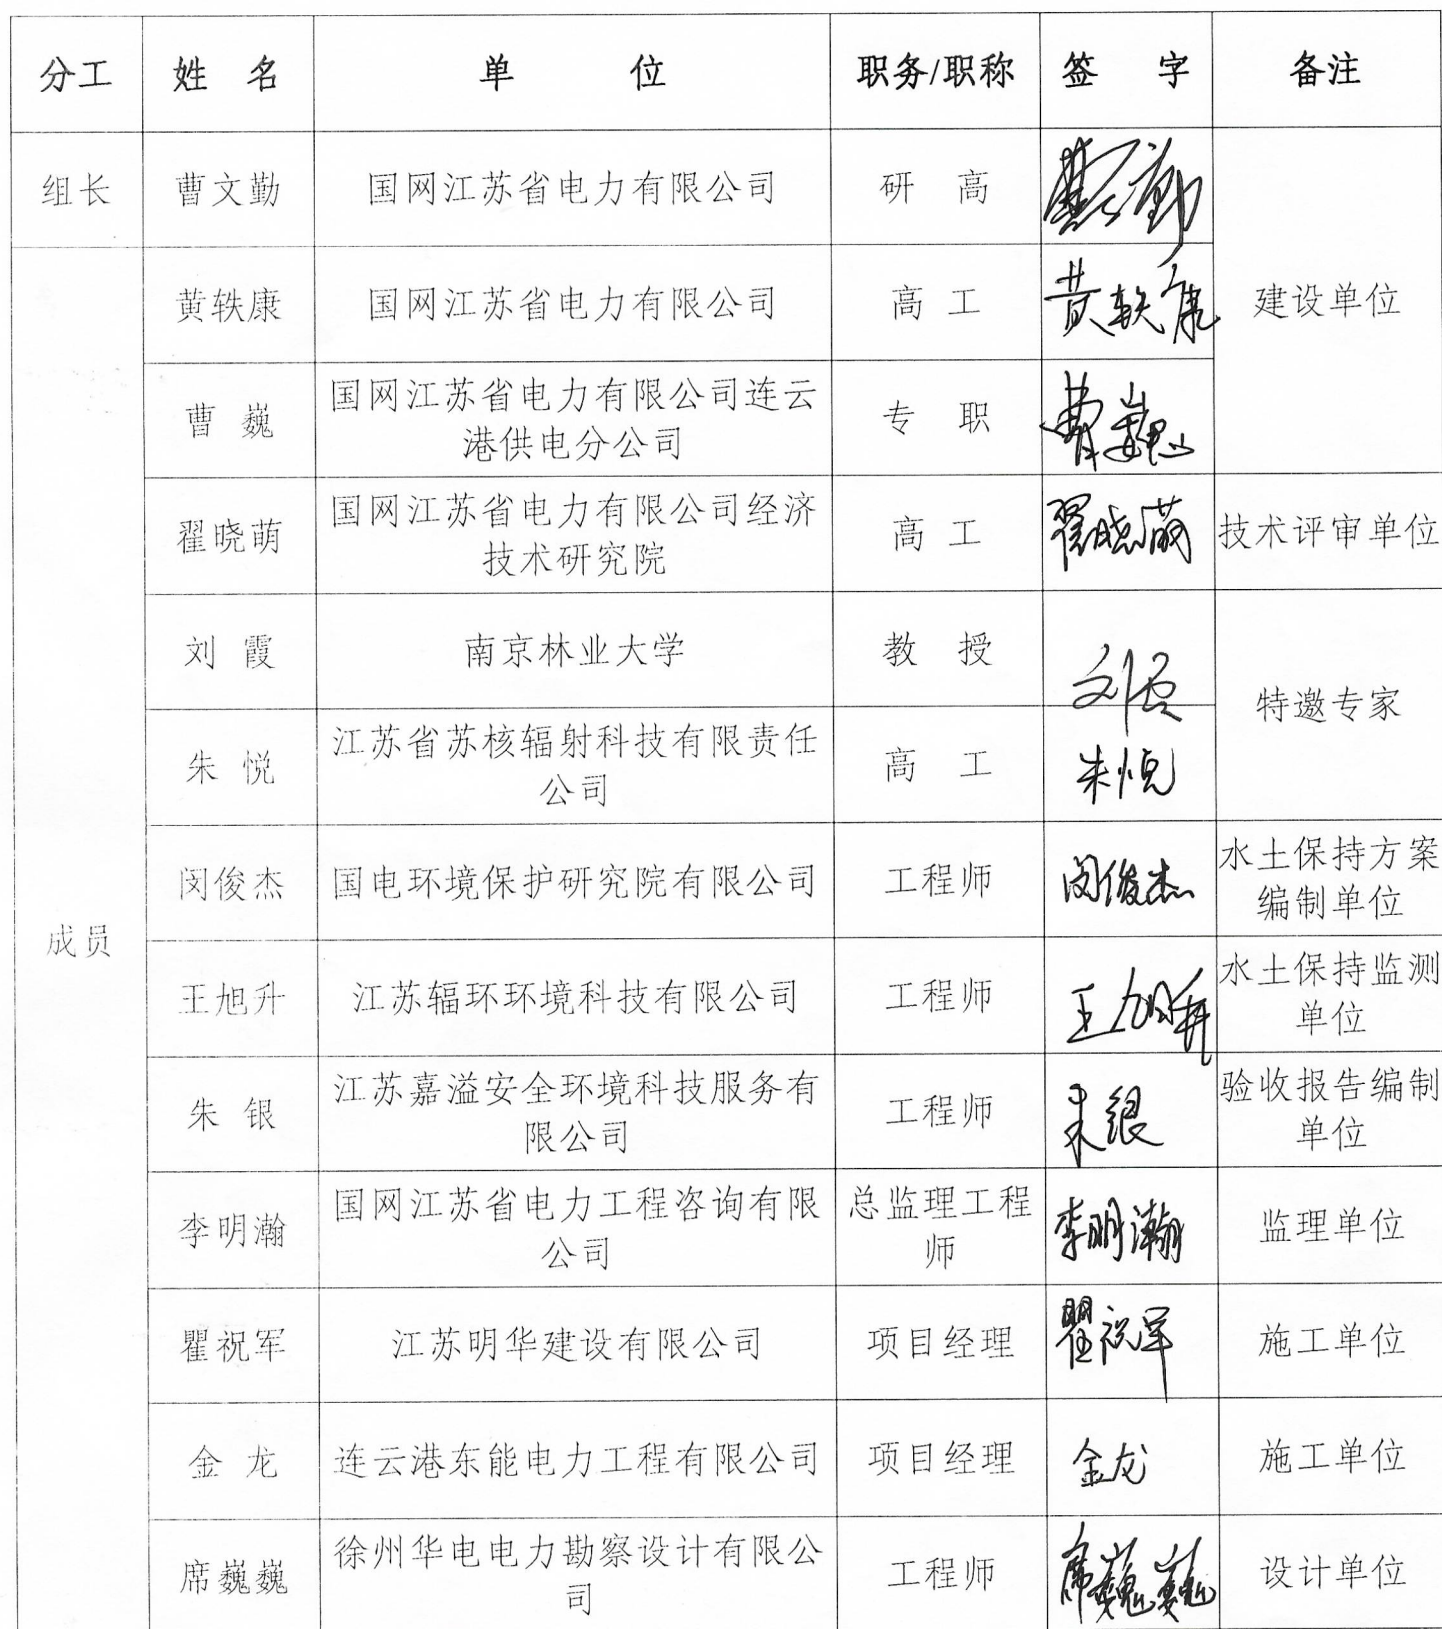 分工 姓 名 单 位 职务/职称 签 字 备注
组长 曹文勤 国网江苏省电力有限公司 研 高 曹文勤
黄轶康 国网江苏省电力有限公司 高 工 黄轶康 建设单位
曹 巍 国网江苏省电力有限公司连云
港供电分公司 专 职 曹巍
翟晓萌 国网江苏省电力有限公司经济
技术研究院 高 工 翟晓萌 技术评审单位
刘 霞 南京林业大学 教 授 刘霞
特邀专家
朱 悦 江苏省苏核辐射科技有限责任
公司 高 工 朱悦
成员
闵俊杰 国电环境保护研究院有限公司 工程师 闵俊杰 水土保持方案
编制单位
王旭升 江苏辐环环境科技有限公司 工程师 王旭升 水土保持监测
单位
朱 银 江苏嘉溢安全环境科技服务有
限公司 工程师 朱银 验收报告编制
单位
李明瀚 国网江苏省电力工程咨询有限
公司 总监理工程
师 李明瀚 监理单位
瞿祝军 江苏明华建设有限公司 项目经理 瞿祝军 施工单位
金 龙 连云港东能电力工程有限公司 项目经理 金龙 施工单位
席巍巍 徐州华电电力勘察设计有限公
司 工程师 席巍巍 设计单位